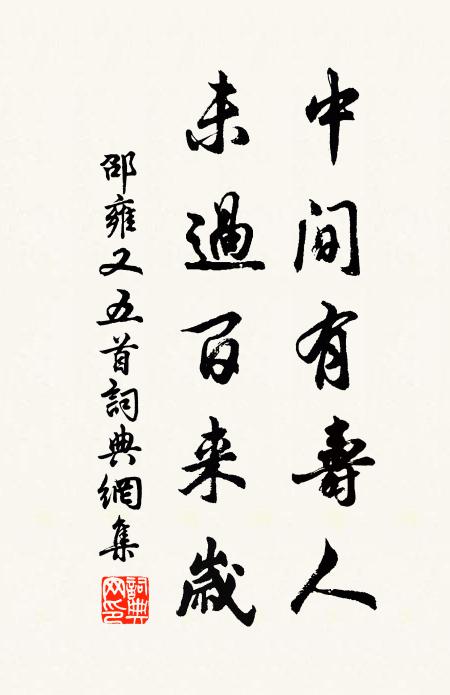 中間有壽人
未過百来歲
邵雍又五首詞典網集
詞典網印